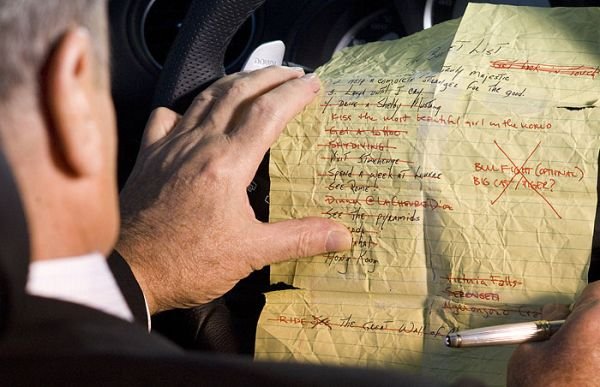 Bucket List
Get back in touch
majestic
2. Help a complete stranger for the good
3. Laugh until I cry
4. Drive a Shelby Mustang
Kiss the most beautiful girl in the world
Get a tattoo
SKYDIVING!
Visit Stonehenge
Spend a week at Louvre
See Rome
Dinner @ La Chevre D'or
See the pyramids
Hong Kong
BULL FIGHT (OPTIONAL)
BIG CAT/TIGER?
Victoria Falls
SERENGETI
RIDE The Great Wall of